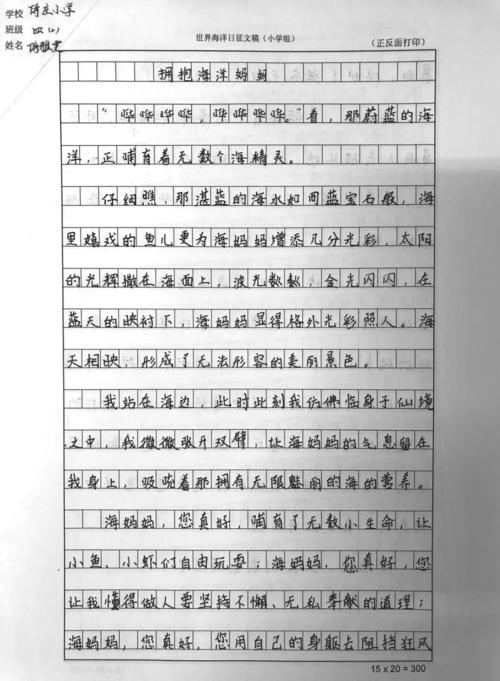 学校 陈庄小学
班级 四(2)
姓名
世界海洋日征文稿（小学组）
（正反面打印）
拥抱海洋妈妈
“哗哗哗哗，哗哗哗哗。”看，那蔚蓝的海
洋，正哺育着无数个海精灵。
仔细瞧，那湛蓝的海水如同蓝宝石般，海
里嬉戏的鱼儿更为海妈妈增添几分光彩，太阳
的光辉撒在海面上，波光粼粼，金光闪闪，在
蓝天的映衬下，海妈妈显得格外光彩照人。海
天相映，形成了无法形容的美丽景色。
我站在海边，此时此刻我仿佛临身于仙境
之中，我微微张开双臂，让海妈妈的气息留在
我身上，吸吮着那拥有无限魅丽的海的营养。
海妈妈，您真好，哺育了无数小生命，让
小鱼、小虾们自由玩耍；海妈妈，您真好，您
让我懂得做人要坚持不懈、无私奉献的道理；
海妈妈，您真好，您用自己的身躯去阻挡狂风
15 x 20 = 300